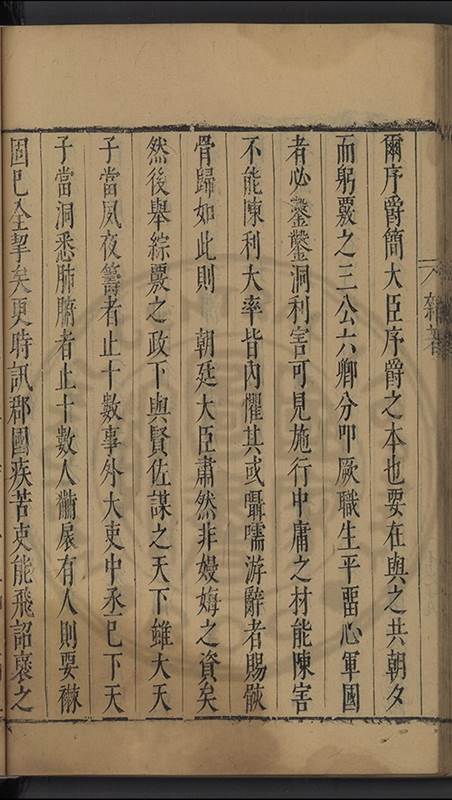 爾序爵簡大臣序爵之本也要在與之共朝夕
而躬覈之三公六卿分叩厥職生平畱心軍國
者必鑿鑿洞利害可見施行中庸之材能陳害
不能陳利大率皆內懼其或囁嚅游辭者賜骸
骨歸如此則 朝廷大臣肅然非嫚娒之資矣
然後舉綜覈之政下與賢佐謀之天下雖大天
子當夙夜籌者止十數事外大吏中丞已下天
子當洞悉肺腑者止十數人黼扆有人則要
固已全挈矣更時訊郡國疾苦吏能飛詔褒之